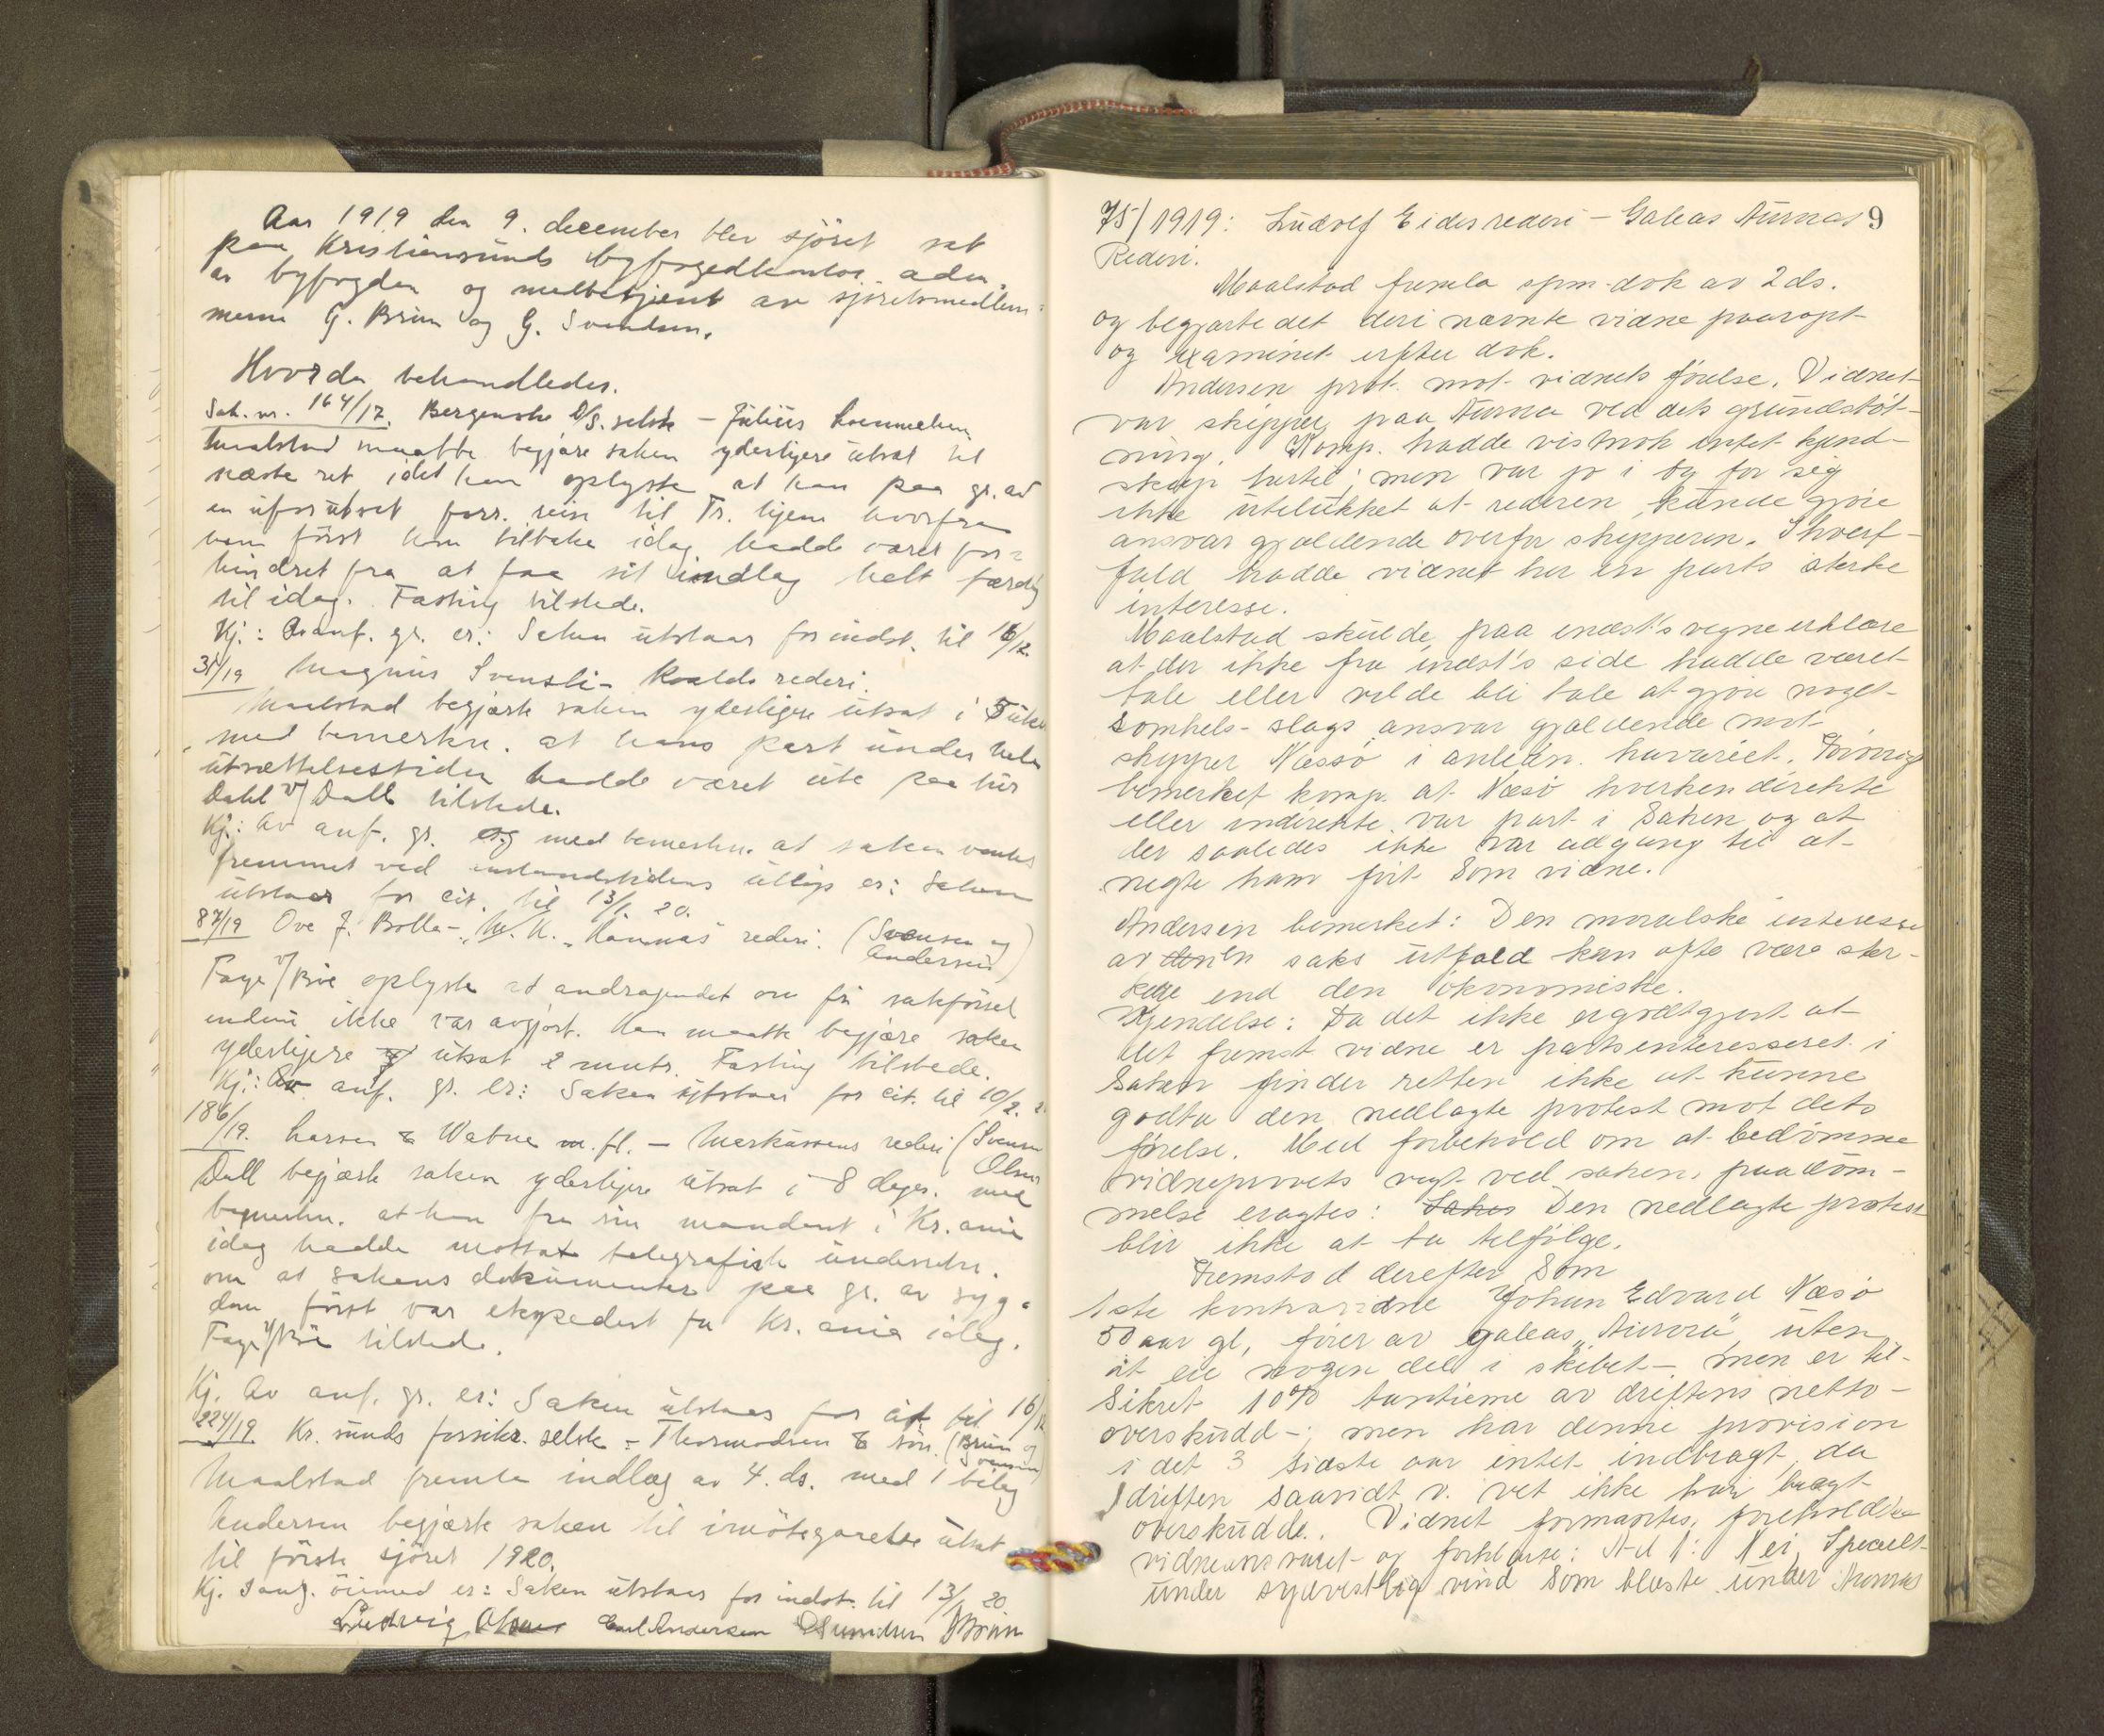 Aar 1919 den 9. december blev sjöret sat
paa Kristiansunds byfogedkontor adm.
av byfogden og medbetjent av sjöretsmedlem=
merne G. Brün og G. Svendsen.
Hvorda behandledes.
Sak. nr. 164/17. Bergenske D/S. selsk – Julius
Maalstad maatte begjære saken yderligere utsat til
næste ret idet han oplyste at han paa gr. av
en uforutset forr. reise til Tr.hjem hvorfra
han först kom tilbake idag hadde været for=
hindret fra at faa sit indlæg helt færdig
til idag. Fasting tilstede.
Kj.: Av anf. gr. er: Saken utstaar for indst. til 16/12.
31/19 Magnus Svensli – Koalds rederi.
Maalstad begjærte saken yderligere utsat i 5 uker
med bemerkn. at hans part under hele
utsættelsestiden hadde været ute paa tur
Dahl v/ Dall tilstede.
Kj.: Av anf. gr. og med bemerkn. at saken ventes
fremmet ved utstandstidens utløp er: Saken
utstaar for cit. til 13/1. 20.
87/19 Ove J. Bolla – M. K. "Hannas" rederi. (Svensen og
Andersen)
Faye v/Bie oplyste at andragendet om fri sakförsel
endnu ikke var avgjort. Han maatte begjære saken
yderligere utsat 2 mnts. Fasting tilstede.
Kj.: Av anf. gr. er: Saken utstaar for cit. til 10/2.
186/19. Larsen & Watne m. fl. – Merkassens rederi (Svensen
Olsen
Dall begjærte saken yderligere utsat i 8 dager. med
bemerkn. at han fra sin mandant i Kr.ania
idag hadde mottat telegrafisk underretn.
om at sakens dokumenter paa gr. av syg=
dom först var ekspedert fra Kr.ania idag.
Faye v/Bie tilstede.
Kj. Av anf. gr. er: Saken utstaar for cit til 16/12
224/19 Kr.sunds forsikr. selsk – Thormodsen & sön. (Brün og
Svensen)
Maalstad fremla indlæg av 4. ds. med 1 bilag
Andersen begjærte saken til imötegaaelse utsat
til förste sjöret 1920.
Kj. i anl. herav er: Saken utstaar for indst. til 13/1 20
Ludvig Olsen Emil Andersen GSvendsen GBrün
75/1919: Ludvlf Eides rederi – Galeas Auroras 9
Rederi.
Maalstad fremla spm-dok av 2 ds.
og begjærte det deri nævnte vidne paaropt
og examinert efter dok.
Andersen prot. mot vidnets förelse. Vidnet
var skipper paa Aurora ved dets grundstöt-
ning. Komp. hadde vistnok intet kjend-
skap hertil; men var jo i og for sig
ikke utelukket at rederen kunde gjöre
ansvar gjældende overfor skipperen. I hvert-
fald hadde vidnet her en parts sterke
interesse.
Maalstad skulde paa indst's vegne erklære
at der ikke fra indst's side hadde været
tale eller vilde bli tale at gjöre noget-
somhelst slags ansvar gjældende mot
skipper Næssö i anledn. havariet. Forövrig
bemerket komp. at Næsö hverken direkte
eller indirekte var part i Saken og at
der saaledes ikke var adgang til at
negte ham fört som vidne.
Andersen bemerket: Den moralske interesse
av en saks utfald kan ofte være ster-
kere end den ökonomiske.
Kjendelse: Da det ikke er godtgjort at
det fremst. vidne er partsinteresseret i
Saken finder retten ikke at kunne
godta den nedlagte protest mot dets
förelse. Med forbehold om at bedömme
vidneprovets vegt ved sakens paadöm-
melse eragtes: Sakes Den nedlagte protest
blir ikke at ta tilfölge.
Fremstod derefter som
1ste kontravidne Johan Edvard Næsö
50 aar gl, förer av galeas "Aurora" uten
at eie nogen del i skibet – men er til-
sikret 10% tantieme av driftens netto-
overskudd –; men har denne provision
i det 3 sidste aar intet indbragt, da
driften saavidt v. vet ikke har bragt
overskudd. Vidnet formantes, foreholdtes
vidneansvaret og forklarte: Ad 1: Nei. Specielt
under sydvestlig vind som blæste under Auroras